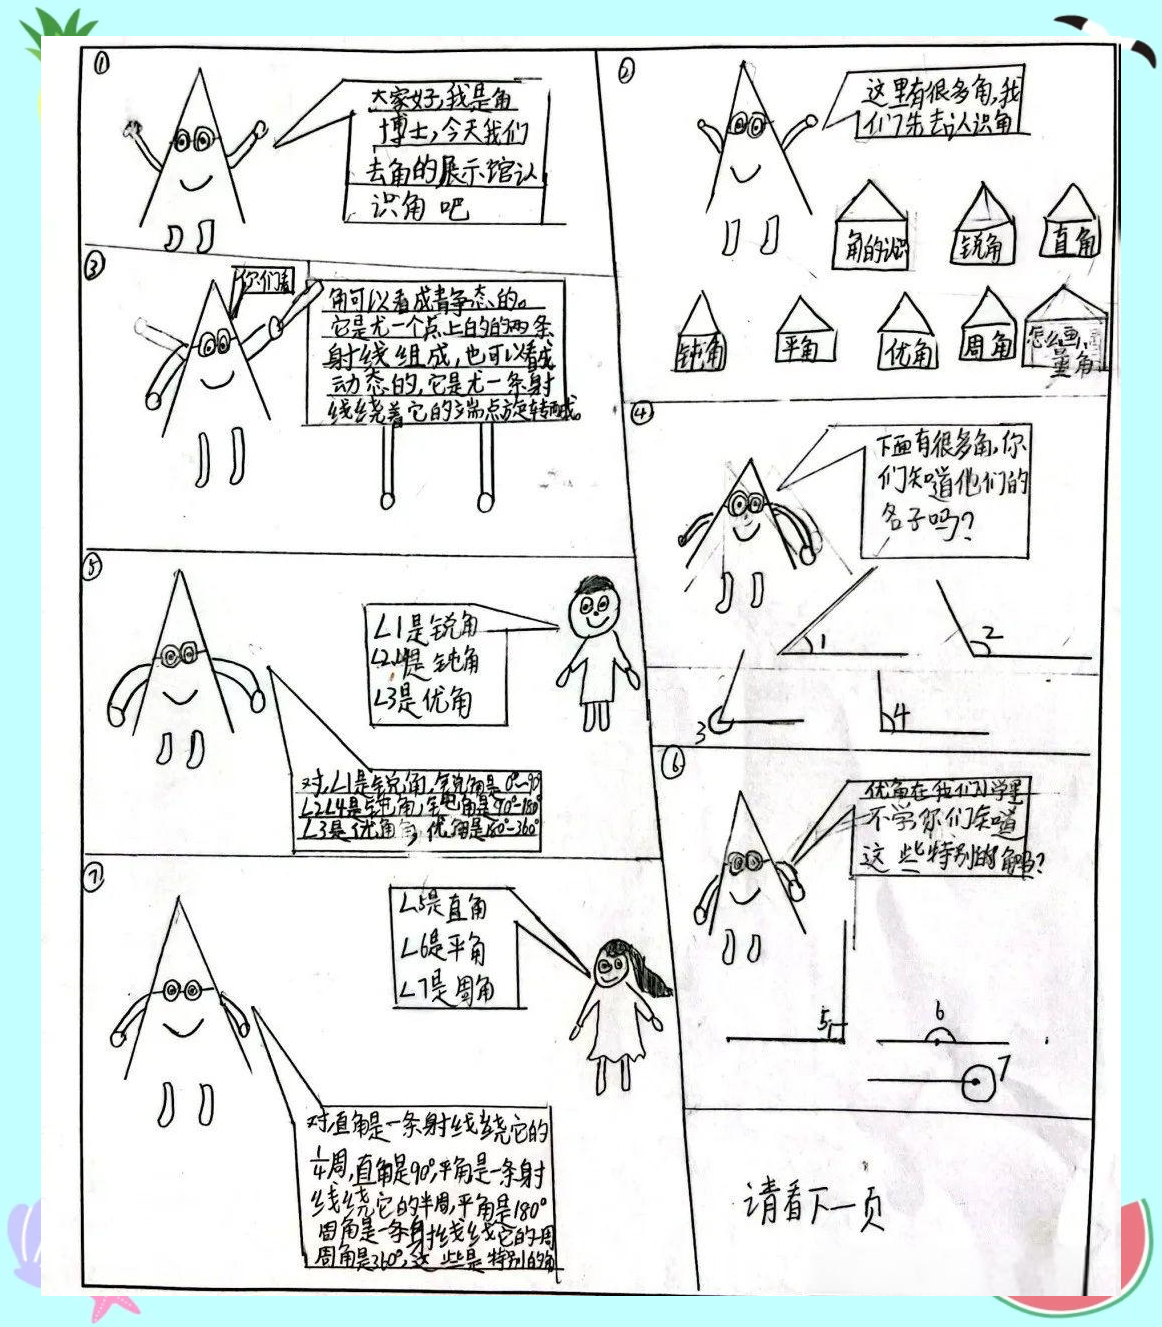 ①
大家好,我是角
博士,今天我们
去角的展示馆认
识角吧
②
这里有很多角,我
们先去认识角
角的认识
锐角
直角
钝角
平角
优角
周角
怎么画,
量角
③
你们看
角可以看成静态的。
它是尤一个点上的的两条
射线组成,也可以看成
动态的,它是尤一条射
线绕着它的端点旋转而成。
④
下面有很多角,你
们知道他们的
名子吗?
1
2
3
4
⑤
∠1是锐角
∠2∠4是钝角
∠3是优角
对,∠1是锐角,锐角是0°~90°
∠2∠4是钝角,钝角是90°-180°
∠3是优角,优角是180°-360°
⑥
优角在我们小学里
不学你们知道
这些特别的角吗?
5
6
7
⑦
∠5是直角
∠6是平角
∠7是周角
对,直角是一条射线绕它的
1/4周,直角是90°,平角是一条射
线绕它的半周,平角是180°
周角是一条射线绕它的一周
周角是360°,这些是特别的角
请看下一页